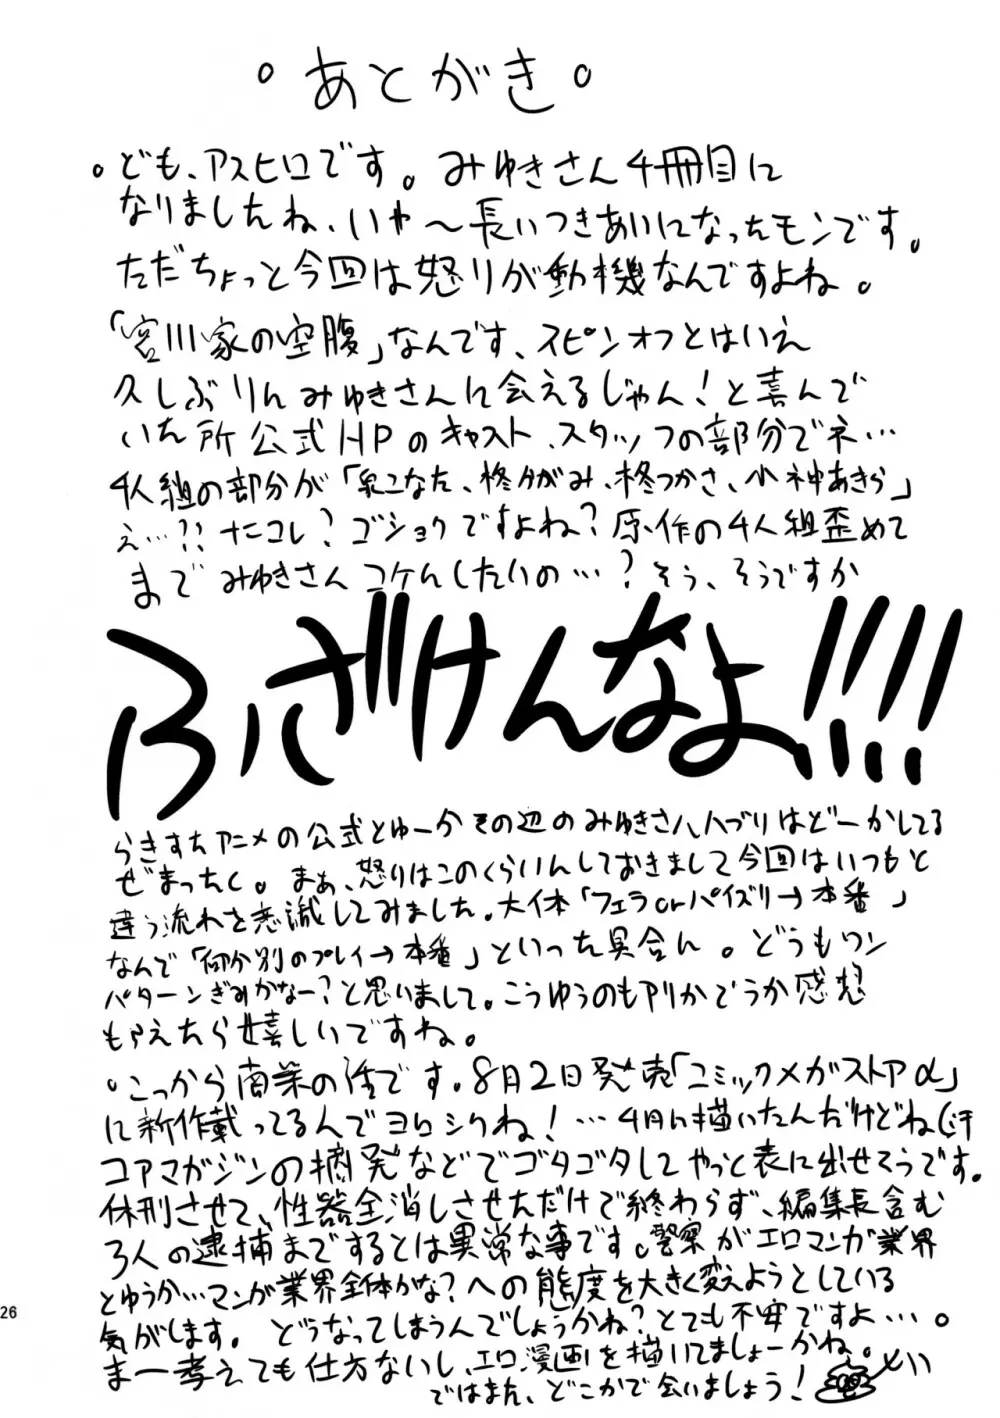 。あとがき。
。ども、アスヒロです。みゆきさん4冊目に
なりましたね、いや〜長いつきあいになったモンです。
ただちょっと今回は怒りが動機なんですよね。
「宮川家の空腹」なんです、スピンオフとはいえ
久しぶりにみゆきさんに会えるじゃん!と喜んで
いた所公式HPのキャスト、スタッフの部分でネ…
4人組の部分が「泉こなた、柊かがみ、柊つかさ、小神あきら」
え…!?ナニコレ?ゴショクですよね?原作の4人組歪めて
までみゆきさんコケにしたいの…?そう、そうですか
ふざけんなよ!!!!
らきすたアニメの公式とゆーかその辺のみゆきさんハブりはどーかしてる
ぜまったく。まぁ、怒りはこのくらいにしておきまして今回はいつもと
違う流れを意識してみました。大体「フェラorパイズリ→本番」
なんで「何か別のプレイ→本番」といった具合に。どうもワン
パターンぎみかなー?と思いまして。こうゆうのもアリかどうか感想
もらえたら嬉しいですね。
。こっから商業の話です。8月2日発売「コミックメガストアα」
に新作載ってるんでヨロシクね!…4月に描いたんだけどね(汗
コアマガジンの摘発などでゴタゴタしてやっと表に出せそうです。
休刊させて、性器全消しさせただけで終わらず、編集長含む
3人の逮捕までするとは異常な事です。警察がエロマンガ業界
とゆうか…マンガ業界全体かな?への態度を大きく変えようとしている
気がします。どうなってしまうんでしょうかね?とても不安ですよ…。
まー考えても仕方ないし、エロ漫画を描いてましょーかね。
ではまた、どこかで会いましょう!
26